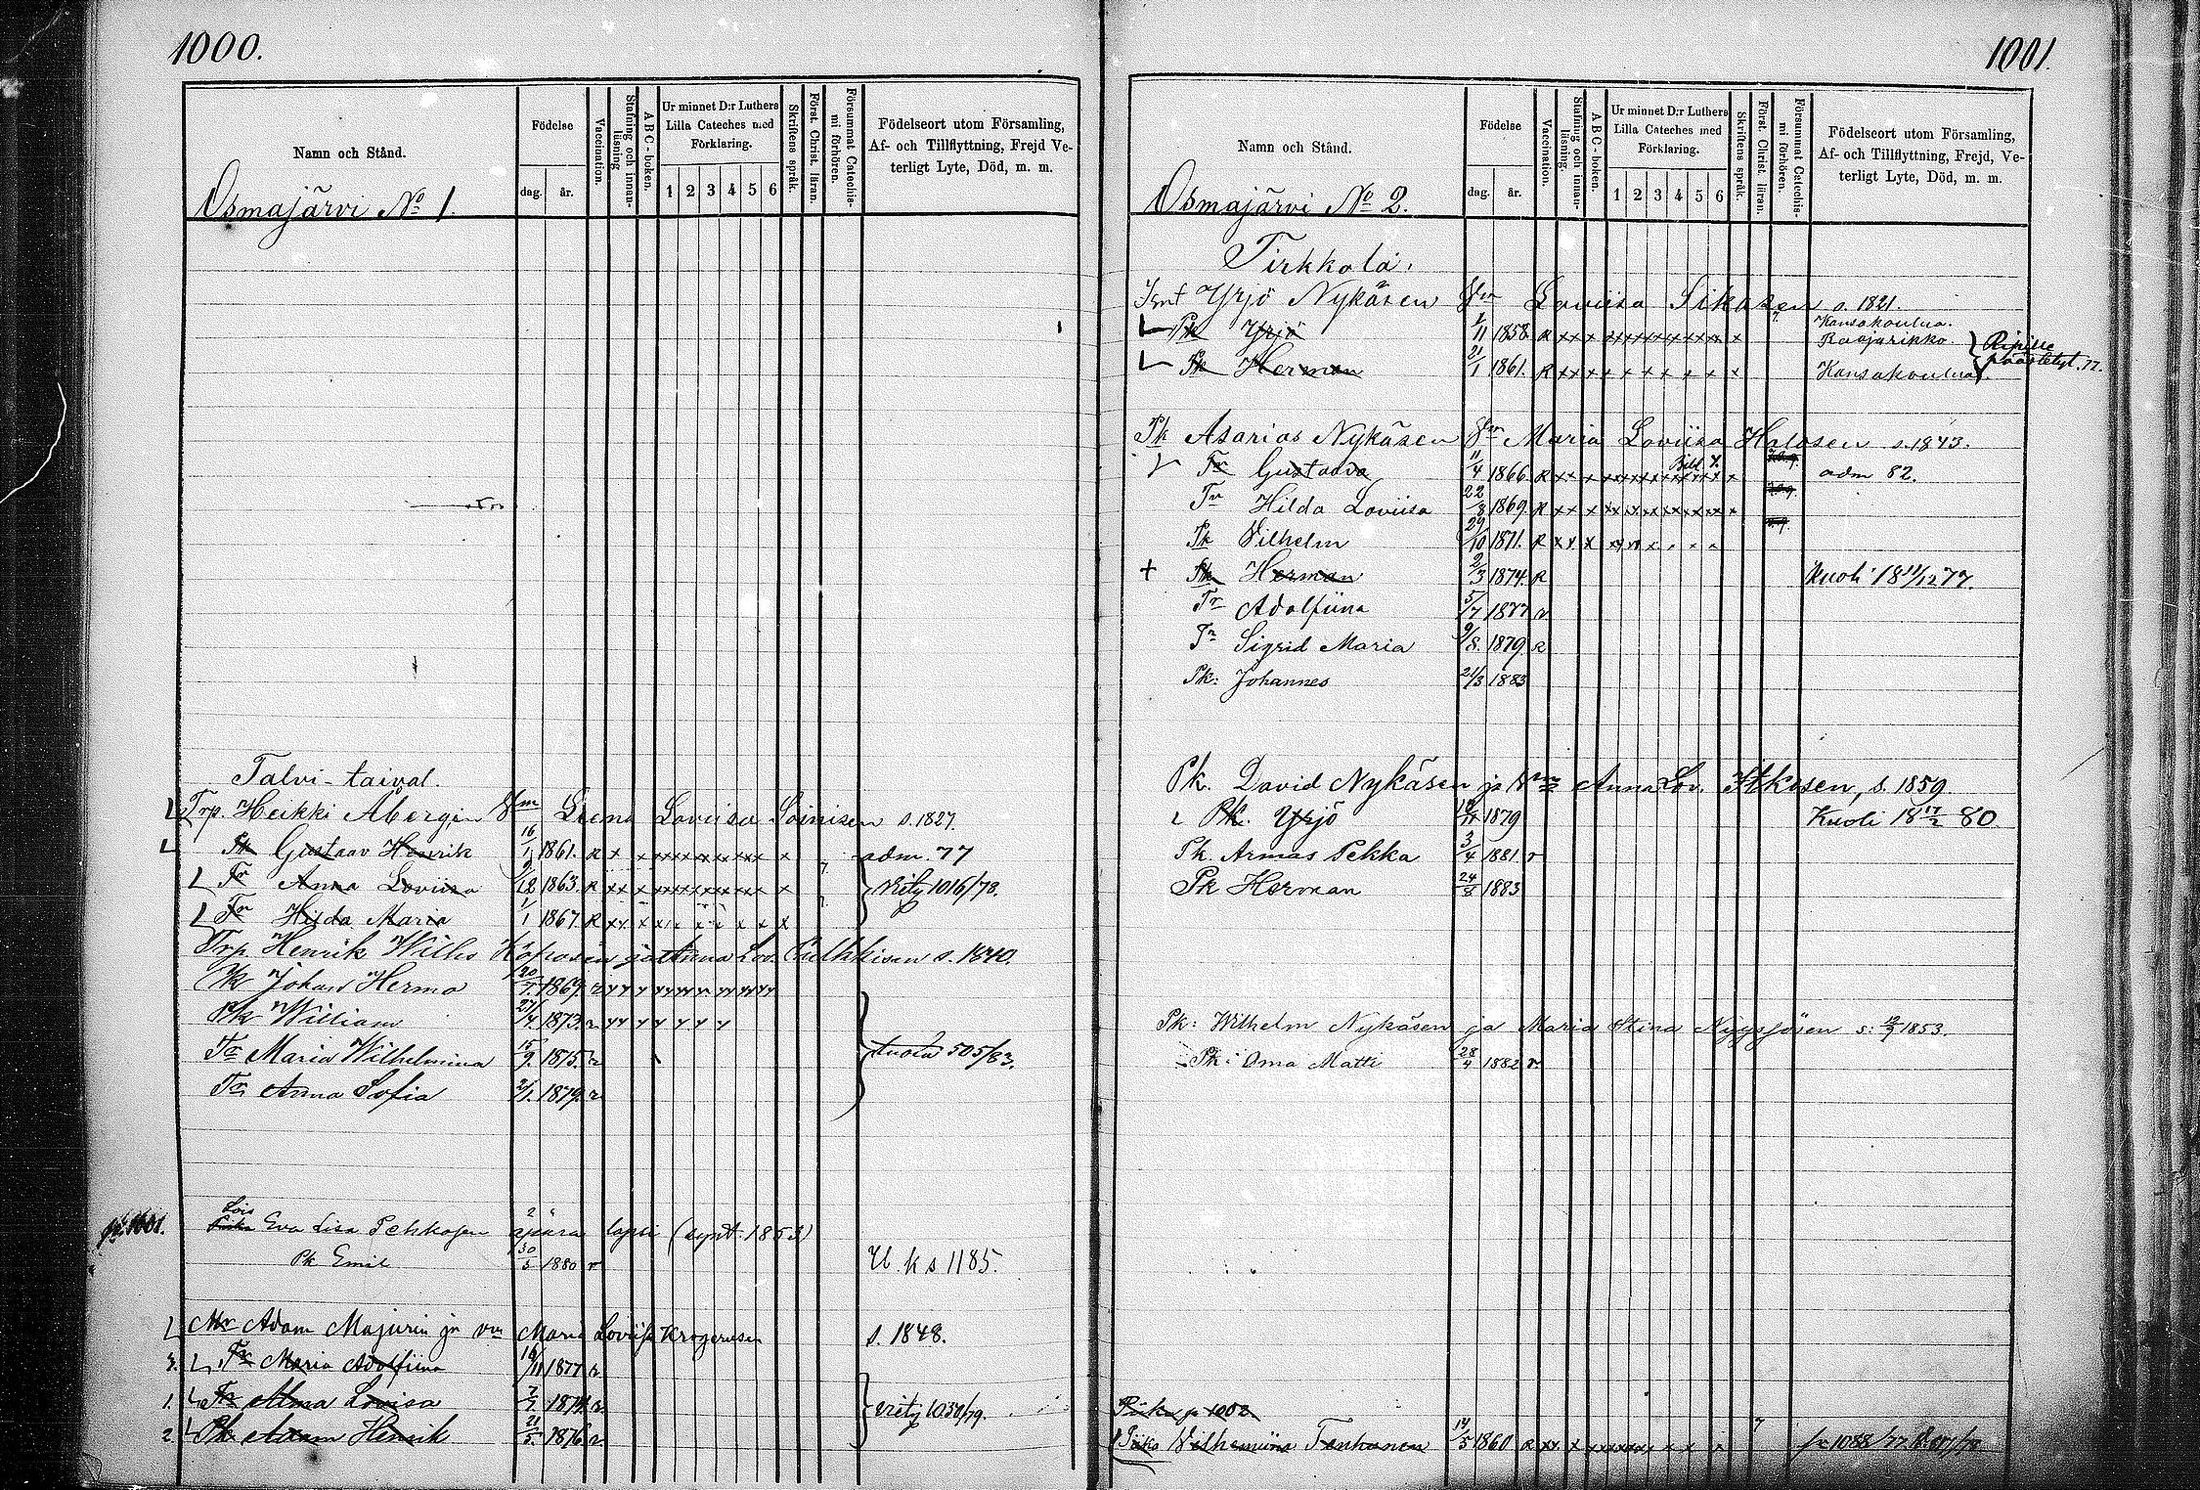 1000.
Namn och Stånd.
Födelse
dag. år.
Vaccination.
Stafning och innan-läsning.
A B C - boken.
Ur minnet D:r Luthers
Lilla Cateches med
Förklaring.
1 2 3 4 5 6
Skriftens språk.
Först. Christ. läran.
Försummat Catechis-mi förhören.
Födelseort utom Församling,
Af- och Tillflyttning, Frejd Ve-
terligt Lyte, Död, m. m.
Osmajärvi No 1.
Talvi-taival.
Trp. Heikki Åbergin Vm Leena Loviisa Soinisen s. 1827.
Pk Gustaav Henrik 16/1 1861. R adm. 77
Tr Anna Loviisa 9/12 1863. R 1016/78.
Tr Hilda Maria 1/1 1867. R
Trp. Henrik Wilhs Koposen ja Anna Lov. s. 1840.
Pk Johan Herma 20/7 1869. r
Pk William 27/4 1873. r
Tr Maria Wilhelmina 15/9. 1875. r tuola 505/83.
Tr Anna Sofia 2/1. 1879. r
Lois
Eva Lisa Pehkosen 2 äpärä lapsi (synt. 1853)
Pk Emil 30/5 1880 r U. k s 1185.
Mr Adam Majurin ja Vm Maria Loviisa Krogerusen s. 1848.
3. Tr Maria Adolfiina 16/11 1877 r
1. Tr Alma Lovisa 1874. r 1037/79.
2. Pk Adam Henrik 21/5. 1876. r
1001.
Namn och Stånd.
Födelse
dag. år.
Vaccination.
Stafning och innan-läsning.
A B C - boken.
Ur minnet D:r Luthers
Lilla Cateches med
Förklaring.
1 2 3 4 5 6
Skriftens språk.
Först. Christ. läran.
Försummat Catechis-mi förhören.
Födelseort utom Församling,
Af- och Tillflyttning, Frejd, Ve-
terligt Lyte, Död, m. m.
Osmajärvi No 2.
Tirkkola.
Isnt Yrjö Nykäsen Vm Loviisa Sikasen s. 1821.
Pk Yrjö 1/11 1858. R Kansakoulua. Raajarikko.
Ripille päästetyt. 77.
Pk Herman 21/1 1861. R Kansakoulua.
Pk Asarias Nykäsen Vm Maria Loviisa Halosen s. 1843.
Tr Gustaava 11/4 1866. R adm 82.
Tr Hilda Loviisa 22/3 1869. R
Pk Vilhelm 29/10 1871. R
+ Pk Herman 2/3 1874. R Kuoli 18 11/12 77.
Tr Adolfiina 5/7 1877 r
Tr Sigrid Maria 9/8. 1879. R
Pk: Johannes 21/3 1883
Pk. David Nykäsen ja Vm Anna Lov. Itkosen, s. 1859.
Pk. Yrjö 1879 Kuoli 18 17/2 80.
Pk. Armas Pekka 3/4 1881. r
Pk Herman 24/8 1883
Pk: Wilhelm Nykäsen ja Maria Stina s: 12/9 1853.
Pk: Oma Matti 28/4 1882 r.
Piika p 1002
Piika Vilhemiina Tenhonen 14/5 1860 R 1088/77.